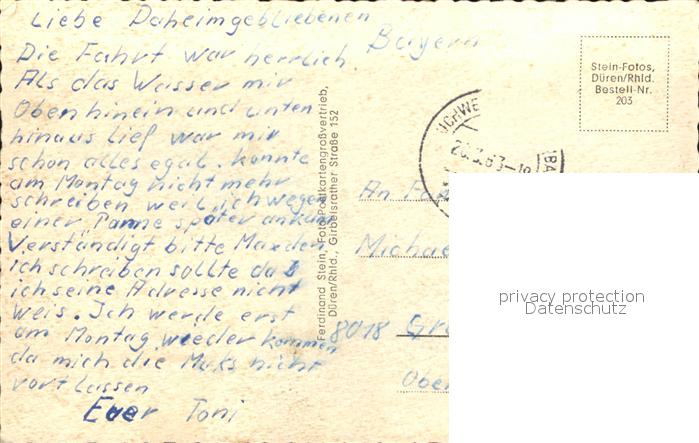 Liebe Daheimgebliebenen
Die Fahrt war herrlich. Bayern
Als das Wasser mir
Oben hinein und unten
hinaus lief war mir
schon alles egal. konnte
am Montag nicht mehr
schreiben weil ich wegen
einer Panne später ankam
Verständigt bitte Max den
ich schreiben sollte daß
ich seine Adresse nicht
weis. Ich werde erst
am Montag wieder kommen
da mich die Maks nicht
vort lassen
Euer Toni
Ferdinand Stein, Foto-Postkartengroßvertrieb,
Düren/Rhld., Girbelsrather Straße 152
Stein-Fotos,
Düren/Rhld.
Bestell-Nr.
203
An Fa
Michae
8018 Gr
Ober
privacy protection
Datenschutz